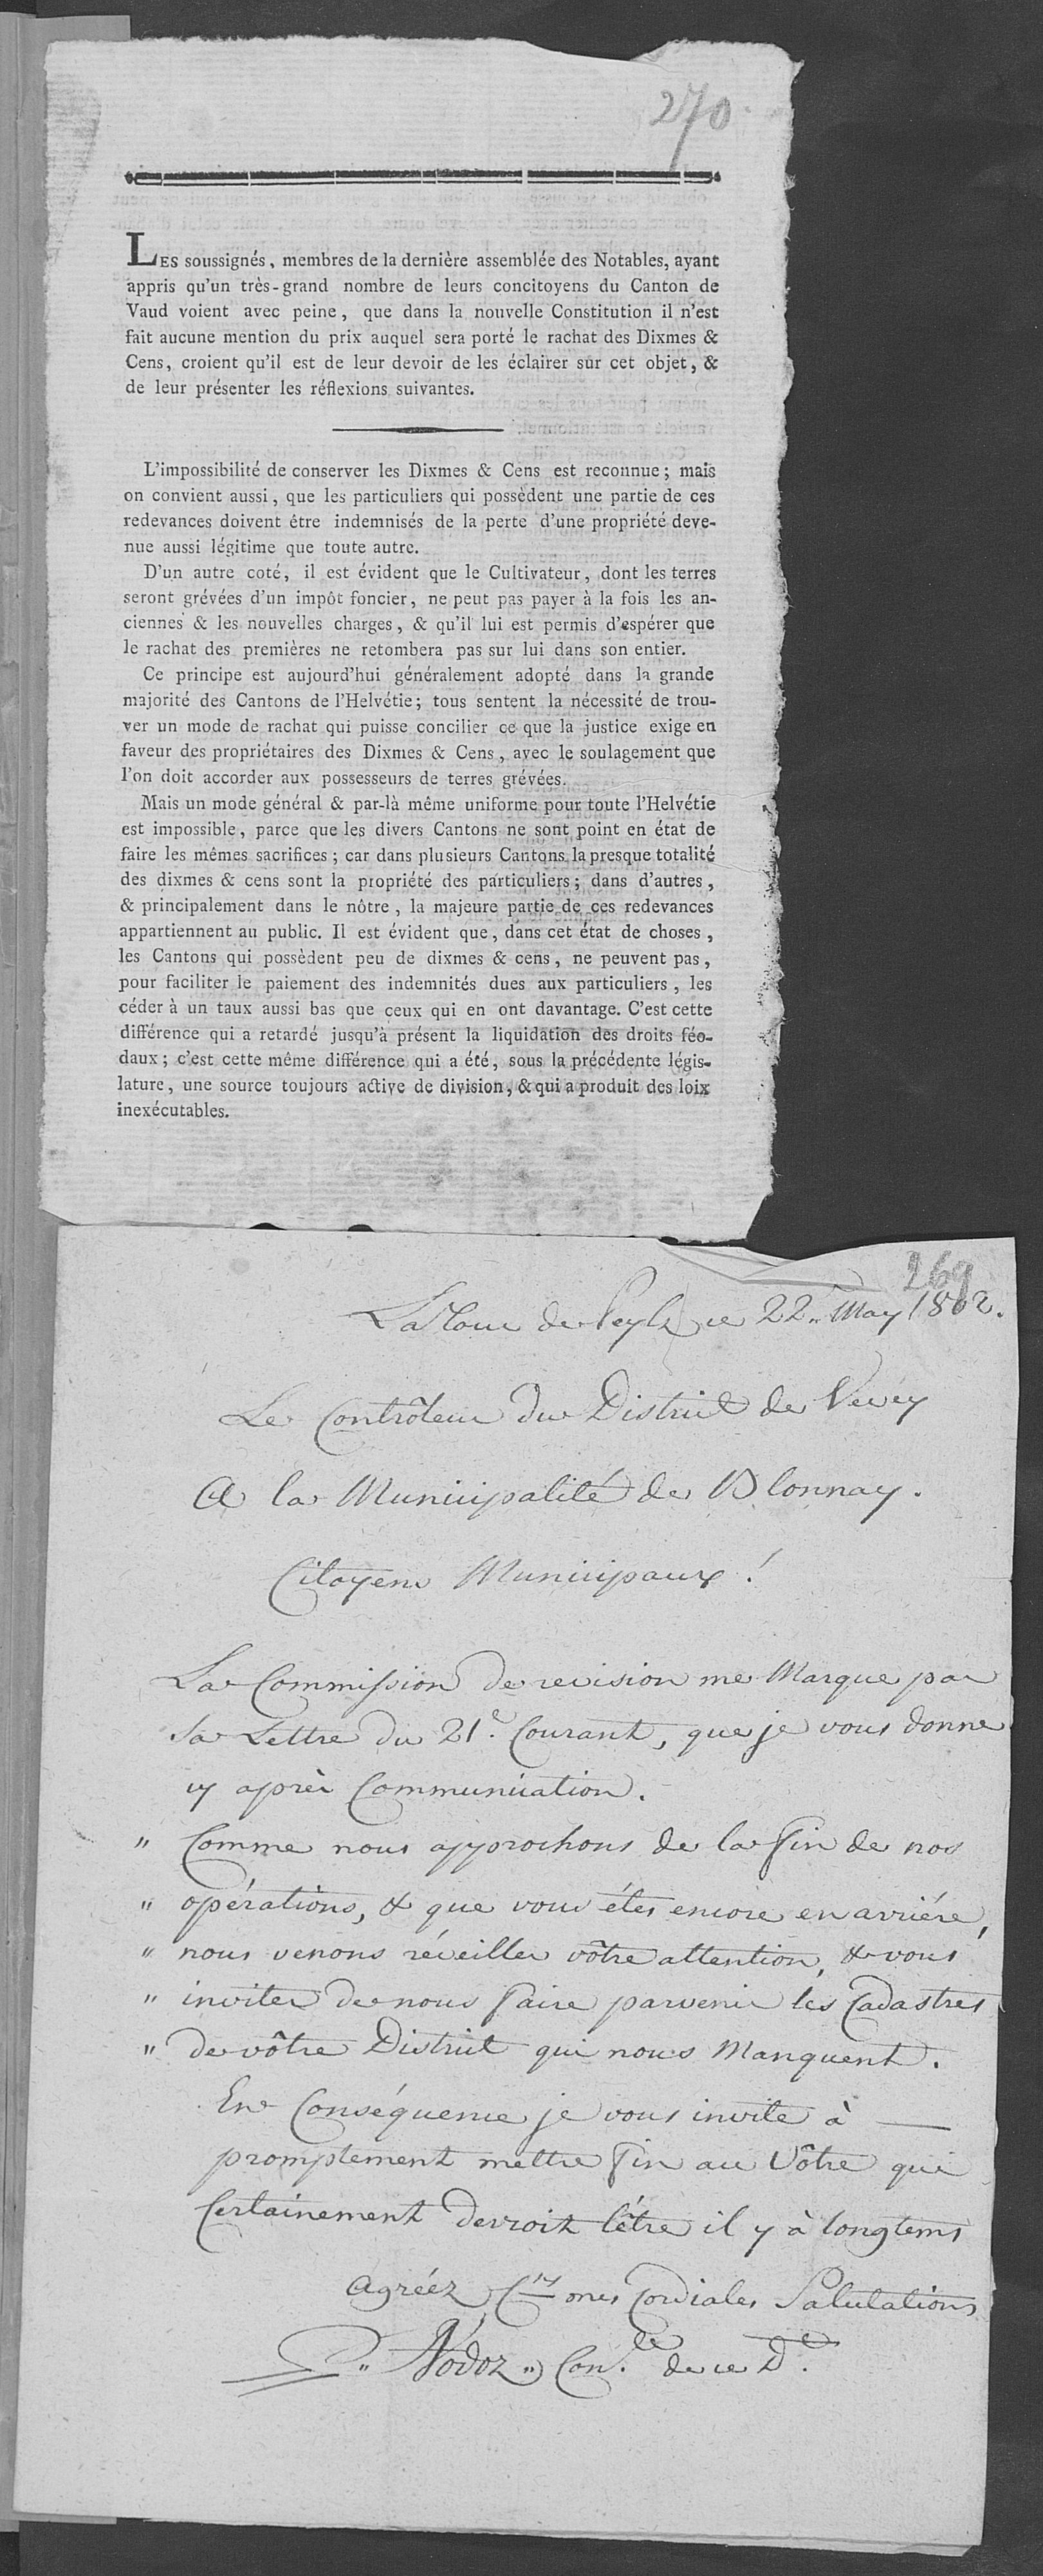 270
LES soussignés, membres de la dernière assemblée des Notables, ayant
appris qu'un très-grand nombre de leurs concitoyens du Canton de
Vaud voient avec peine, que dans la nouvelle Constitution il n'est
fait aucune mention du prix auquel sera porté le rachat des Dixmes &
Cens, croient qu'il est de leur devoir de les éclairer sur cet objet, &
de leur présenter les réflexions suivantes.
L'impossibilité de conserver les Dixmes & Cens est reconnue; mais
on convient aussi, que les particuliers qui possèdent une partie de ces
redevances doivent être indemnisés de la perte d'une propriété deve-
nue aussi légitime que toute autre.
D'un autre coté, il est évident que le Cultivateur, dont les terres
seront grévées d'un impôt foncier, ne peut pas payer à la fois les an-
ciennes & les nouvelles charges, & qu'il lui est permis d'espérer que
le rachat des premières ne retombera pas sur lui dans son entier.
Ce principe est aujourd'hui généralement adopté dans la grande
majorité des Cantons de l'Helvétie; tous sentent la nécessité de trou-
ver un mode de rachat qui puisse concilier ce que la justice exige en
faveur des propriétaires des Dixmes & Cens, avec le soulagement que
l'on doit accorder aux possesseurs de terres grévées.
Mais un mode général & par-là même uniforme pour toute l'Helvétie
est impossible, parce que les divers Cantons ne sont point en état de
faire les mêmes sacrifices; car dans plusieurs Cantons la presque totalité
des dixmes & cens sont la propriété des particuliers; dans d'autres,
& principalement dans le nôtre, la majeure partie de ces redevances
appartiennent au public. Il est évident que, dans cet état de choses,
les Cantons qui possèdent peu de dixmes & cens, ne peuvent pas,
pour faciliter le paiement des indemnités dues aux particuliers, les
céder à un taux aussi bas que ceux qui en ont davantage. C'est cette
différence qui a retardé jusqu'à présent la liquidation des droits féo-
daux; c'est cette même différence qui a été, sous la précédente légis-
lature, une source toujours active de division, & qui a produit des loix
inexécutables.
269
La Tour de Peylz ce 22" May 1802.
Le Contrôleur du District de Vevey
A la Municipalité de Blonnay.
Citoyens Municipaux!
La Commission de revision me Marque par
Sa Lettre du 21e. Courant, que je vous donne
cy après Communication.
" Comme nous approchons de la fin de nos
" opérations, & que vous étes encore en arriére,
" nous venons réveiller vôtre attention, & vous
" inviter de nous faire parvenir les Cadastres
" de vôtre District qui nous Manquent.
En Conséquence je vous invite à
promptement mettre fin au Vôtre qui
Certainement devroit l'être il y à longtems
Agréez Cns mes Cordiales Salutations
" Nodoz " Con.le de ce De.